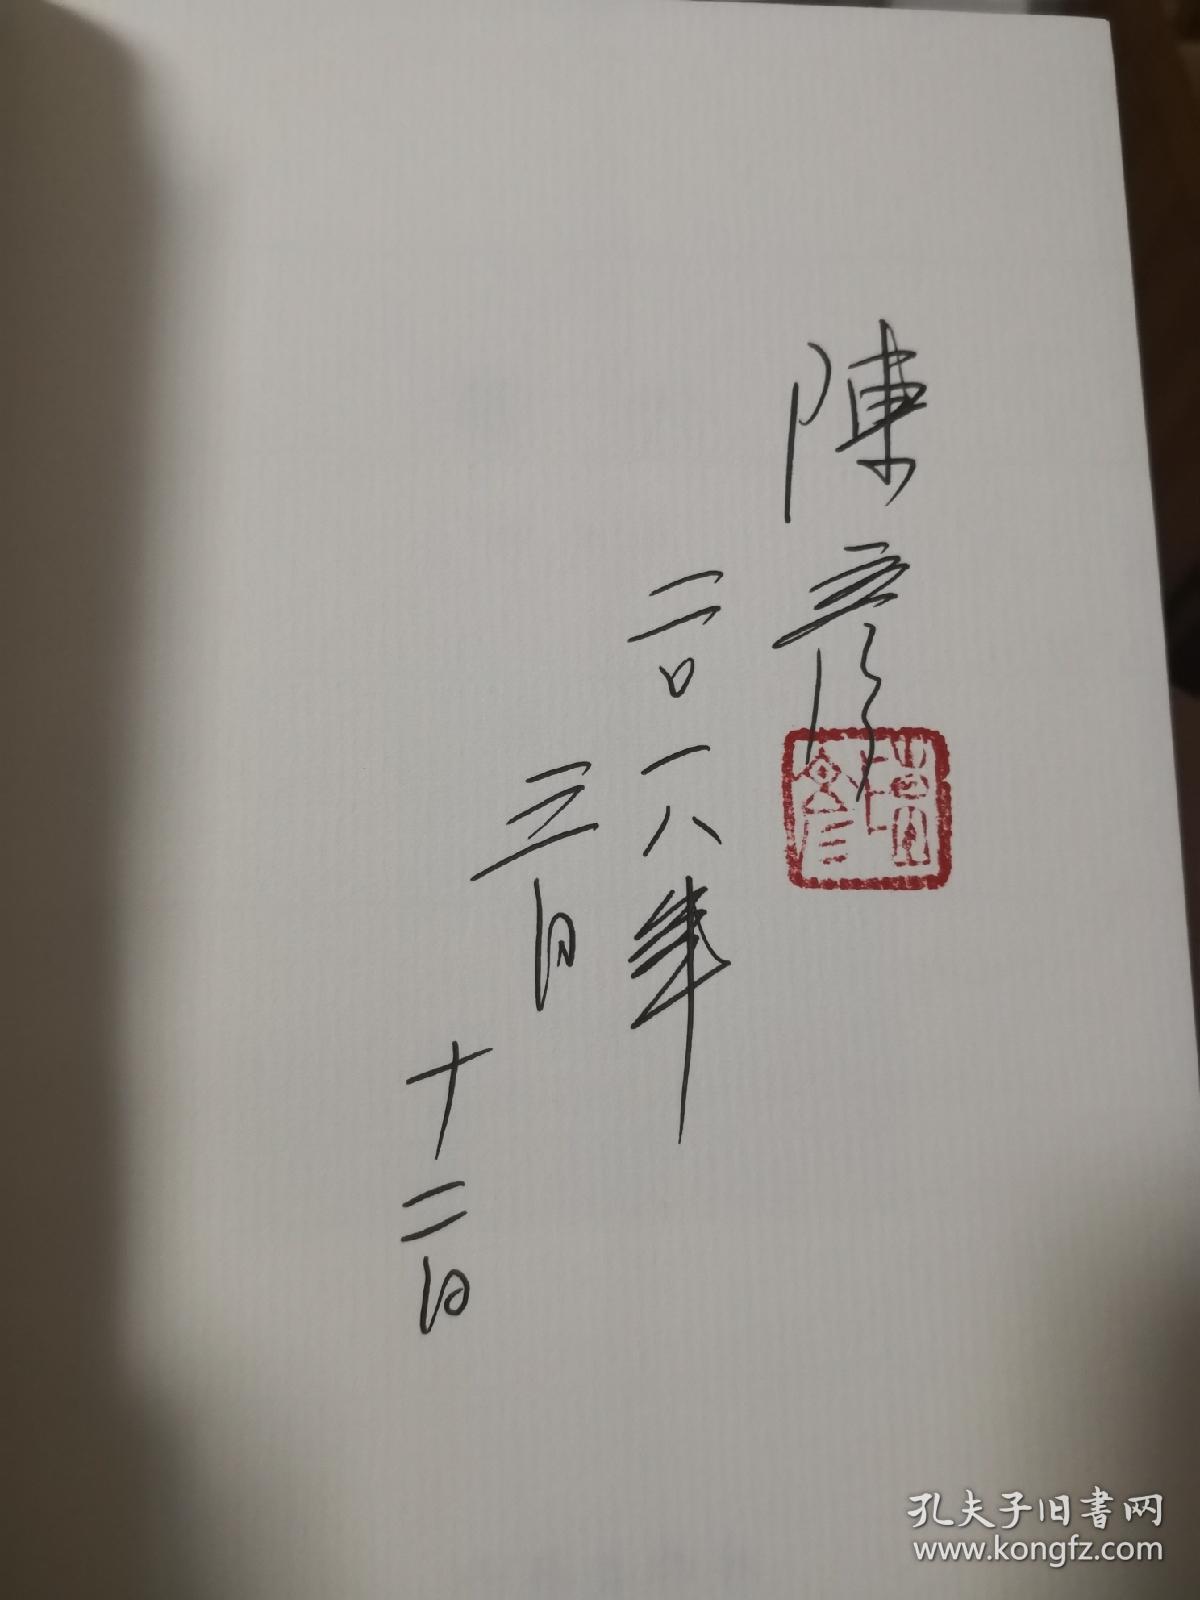 陳彦
二〇一八年
三月
十二日
孔夫子旧書网
www.kongfz.com